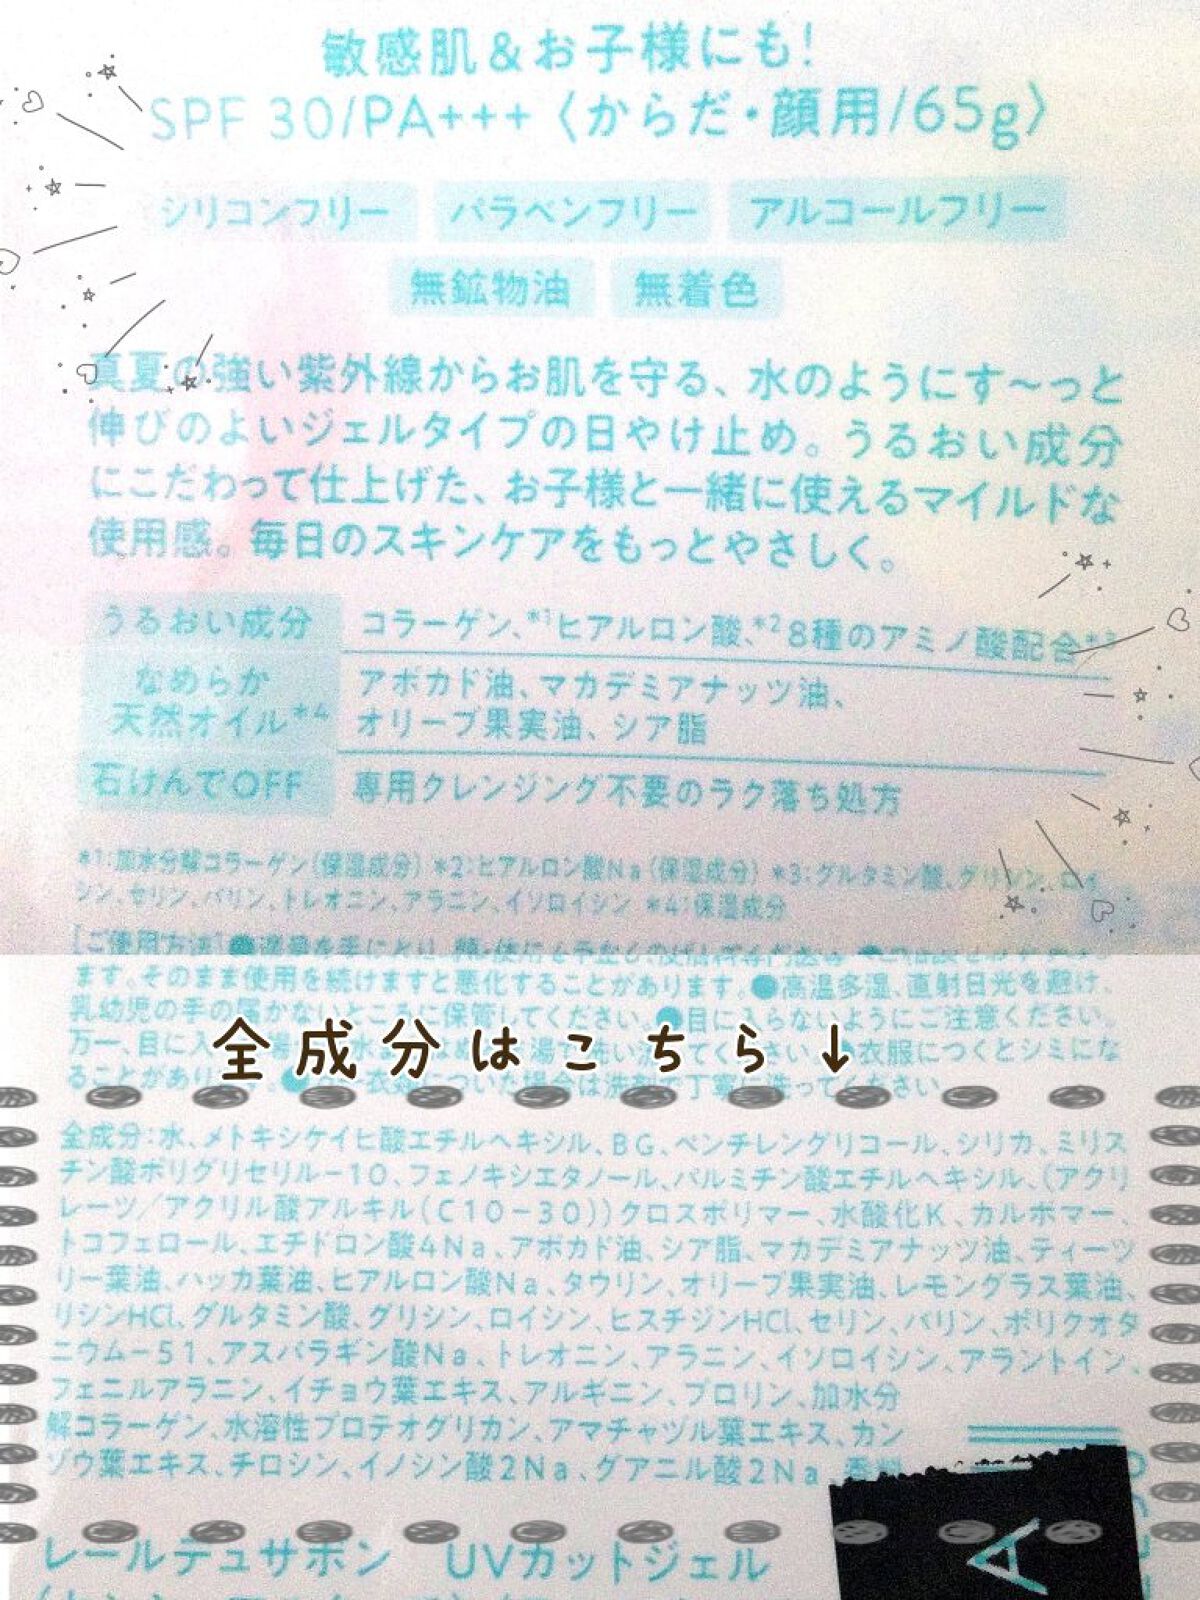 敏感肌&お子様にも!
SPF 30/PA+++〈からだ・顔用/65g〉
シリコンフリー パラベンフリー アルコールフリー
無鉱物油 無着色
真夏の強い紫外線からお肌を守る、水のようにす〜っと
伸びのよいジェルタイプの日やけ止め。うるおい成分
にこだわって仕上げた、お子様と一緒に使えるマイルドな
使用感。毎日のスキンケアをもっとやさしく。
うるおい成分 コラーゲン、*1ヒアルロン酸、*2 8種のアミノ酸配合*3
なめらか 天然オイル*4
アボカド油、マカデミアナッツ油、
オリーブ果実油、シア脂
石けんでOFF 専用クレンジング不要のラク落ち処方
*1:加水分解コラーゲン(保湿成分) *2:ヒアルロン酸Na(保湿成分) *3:グルタミン酸、グリシン、ロイ
シン、セリン、バリン、トレオニン、アラニン、イソロイシン *4:保湿成分
[ご使用方法]●適量を手にとり、
ます。そのまま使用を続けますと悪化することがあります。●高温多湿、直射日光を避け、
乳幼児の手の届かないところに保管してください。●目に入らないようにご注意ください。
万一、目に入 湯で洗い流してください ●衣服につくとシミにな
ることがあり 衣服についた場合は洗剤で丁寧に洗ってください
全成分はこちら↓
全成分:水、メトキシケイヒ酸エチルヘキシル、BG、ペンチレングリコール、シリカ、ミリス
チン酸ポリグリセリル-10、フェノキシエタノール、パルミチン酸エチルヘキシル、(アクリ
レーツ/アクリル酸アルキル(C10-30))クロスポリマー、水酸化K、カルボマー、
トコフェロール、エチドロン酸4Na、アボカド油、シア脂、マカデミアナッツ油、ティーツ
リー葉油、ハッカ葉油、ヒアルロン酸Na、タウリン、オリーブ果実油、レモングラス葉油、
リシンHCl、グルタミン酸、グリシン、ロイシン、ヒスチジンHCl、セリン、バリン、ポリクオタ
ニウム-51、アスパラギン酸Na、トレオニン、アラニン、イソロイシン、アラントイン、
フェニルアラニン、イチョウ葉エキス、アルギニン、プロリン、加水分
解コラーゲン、水溶性プロテオグリカン、アマチャヅル葉エキス、カン
ゾウ葉エキス、チロシン、イノシン酸2Na、グアニル酸2Na、香料
レールデュサボン UVカットジェル
A